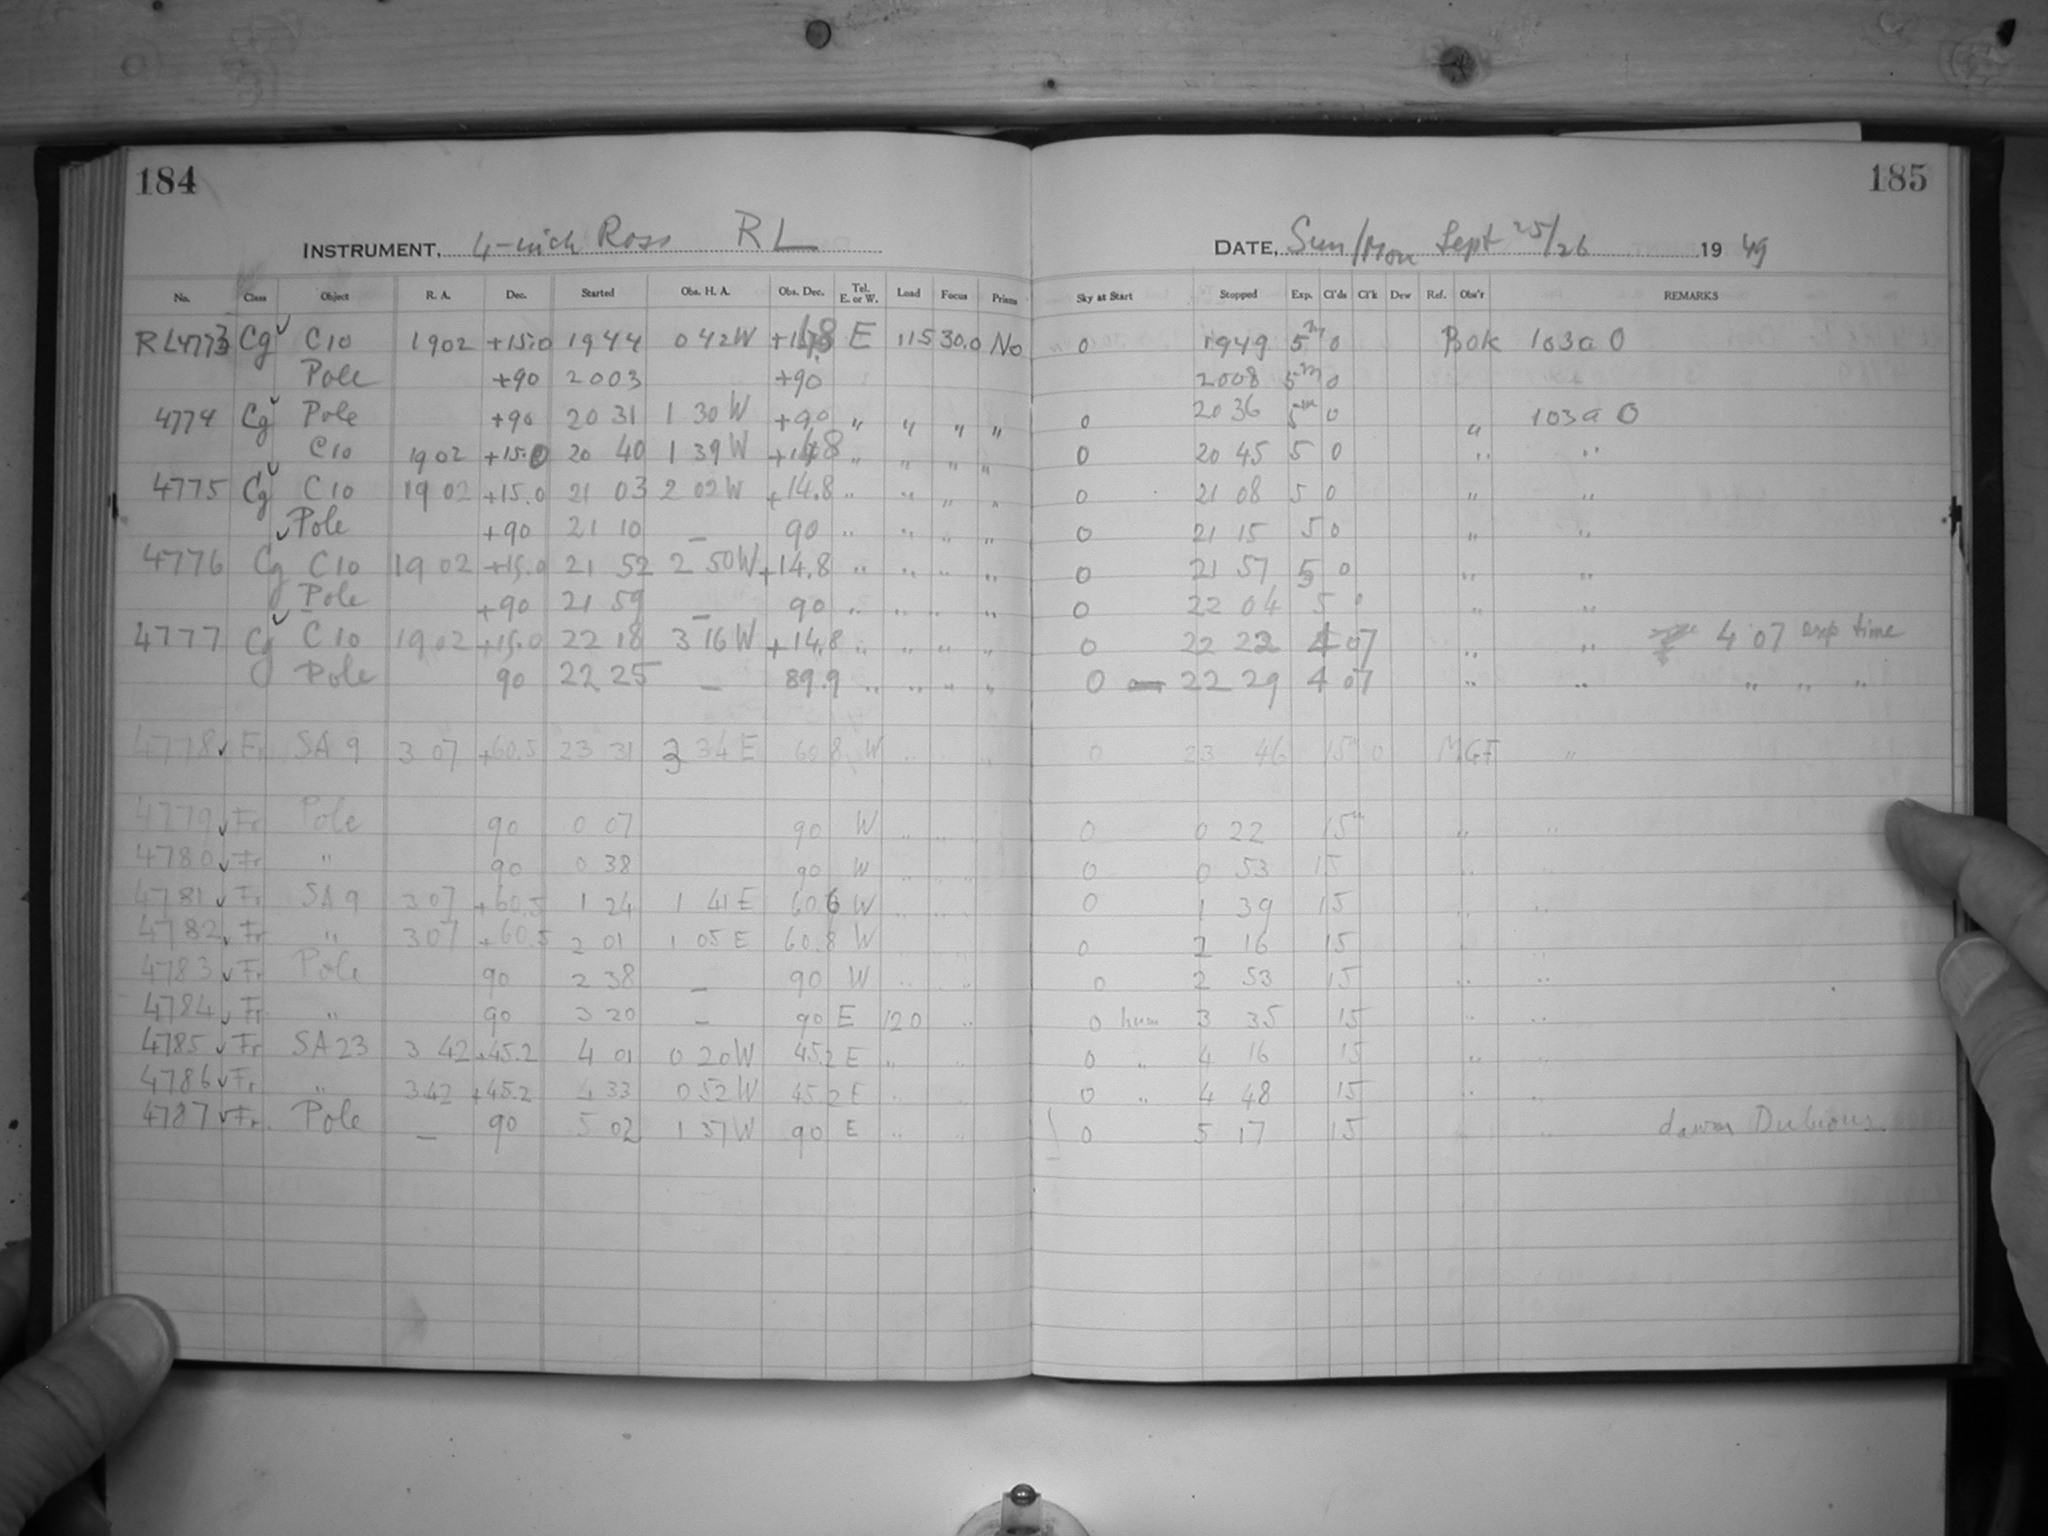 184
INSTRUMENT, 4-inch Ross RL
No. Class Object R. A. Dec. Started Obs. H. A. Obs. Dec. Tel. E. or W. Load Focus Prisms
RL4773 Cg C10 1902 +15.0 1944 0 42W E 115 30.0 No
Pole +90 2003 +90
4774 Cg Pole +90 20 31 1 30 W +90 " " " "
C10 1902 +15.0 20 40 1 39 W +14.8 " " " "
4775 Cg C10 19 02 +15.0 21 03 2 02W +14.8 " " " "
Pole +90 21 10 — 90 " " " "
4776 Cg C10 19 02 +15.0 21 52 2 50W +14.8 " " " "
Pole +90 21 59 — 90 " " " "
4777 Cg C10 19 02 +15.0 22 18 3 16 W +14.8 " " " "
Pole 90 22 25 — 89.9 " " " "
4778 Fr SA 9 3 07 +60.5 23 31 3 34 E 60 8 W " " "
4779 Fr Pole 90 0 07 90 W " " "
4780 Fr " 90 0 38 90 W " " "
4781 Fr SA 9 3 07 +60.5 1 24 1 41 E 60 6 W " " "
4782 Fr " 3 07 +60.5 2 01 1 05 E 60.8 W
4783 Fr Pole 90 2 38 — 90 W " "
4784 Fr " 90 3 20 — 90 E 120 "
4785 Fr SA 23 3 42 +45.2 4 01 0 20W 45.2 E " "
4786 Fr " 3 42 +45.2 4 33 0 52 W 45.2 E " "
4787 Fr. Pole — 90 5 02 1 37 W 90 E " "
185
DATE, Sun/Mon Sept 25/26 19 49
Sky at Start Stopped Exp. Cl'ds Cl'k Dew Ref. Obs'r REMARKS
0 1949 5m 0 Bok 103a O
2008 5m 0
0 20 36 5m 0 " 103a O
0 20 45 5 0 " "
0 21 08 5 0 " "
0 21 15 5 0 " "
0 21 57 5 0 " "
0 22 04 5 0 " "
0 22 22 4 07 " " 4 07 exp time
0 22 29 4 07 " " " " "
0 23 46 15m 0 MGF "
0 0 22 15m " "
0 0 53 15 " "
0 1 39 15 " "
0 2 16 15 "
0 2 53 15 " "
0 hum 3 35 15 " "
0 " 4 16 15 "
0 " 4 48 15 " "
0 5 17 15 " " dawn Dubious